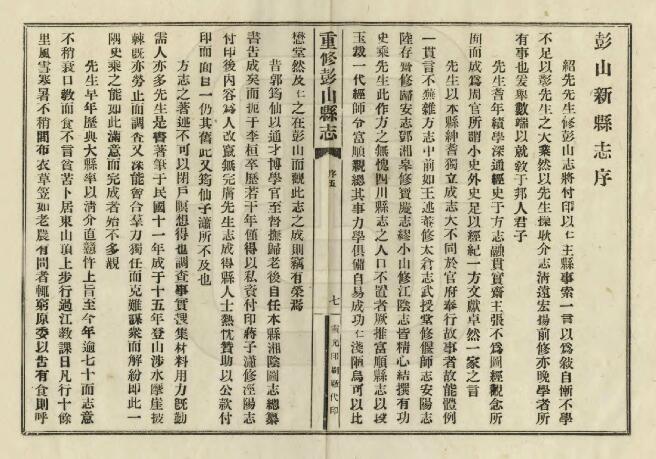 彭山新縣志序
紹先先生修彭山志將付印以仁主縣事索一言以爲敘自慚不學
不足以彰先生之大業然以先生操耿介志清遠宏揚前修亦晚學者所
有事也爰舉數端以就敎于邦人君子
先生蚤年績學深通經史于方志融貫實齋主張不爲圖經觀念所
囿而成爲周官所謂小史外史足以經紀一方文獻卓然一家之言
先生以本縣紳耆獨立成志大不同於官府奉行故事者故能體例
一貫言不蕪雜方志中前如王述菴修太倉志武授堂修偃師志安陽志
陸存齋修歸安志鄧湘皋修寶慶志繆小山修江陰志皆精心結撰有功
史乘先生此作方之無愧四川縣志之人口不置者厥推富順縣志以段
玉裁一代經師令富順親總其事力學俱備自易成功仁淺陋烏可以比
重修彭山縣志
序五
七
懋堂然及仁之在彭山而觀此志之成則竊有榮焉
昔郭筠仙以通才博學官至督撫歸老後自任本縣湘陰圖志總纂
書告成矣而扼于李桓卒歷若干年僅得以私資付印蔣子瀟修涇陽志
付印後內容爲人改竄無完膚先生志成得縣人士熱忱贊助以公款付
印而面目一仍其舊此又筠仙子瀟所不及也
方志之著述不可以閉戶瞑想得也調查事實蒐集材料用力旣勤
需人亦多先生是書著筆于民國十一年成于十五年登山涉水摩崖披
棘旣亦勞止而調查又深能會合羣力獨任而克難謀衆而解紛即此一
隅史乘之能如此滿意而完成者殆不多覯
先生早年歷典大縣率以清介直戇忤上旨至今年逾七十而志意
不稍衰口敎而食不言貧苦卜居東山頂上步行過江敎課日凡行十餘
里風雪寒暑不稍間布衣草笠如老農有問者輒窮原委以告有食則呼